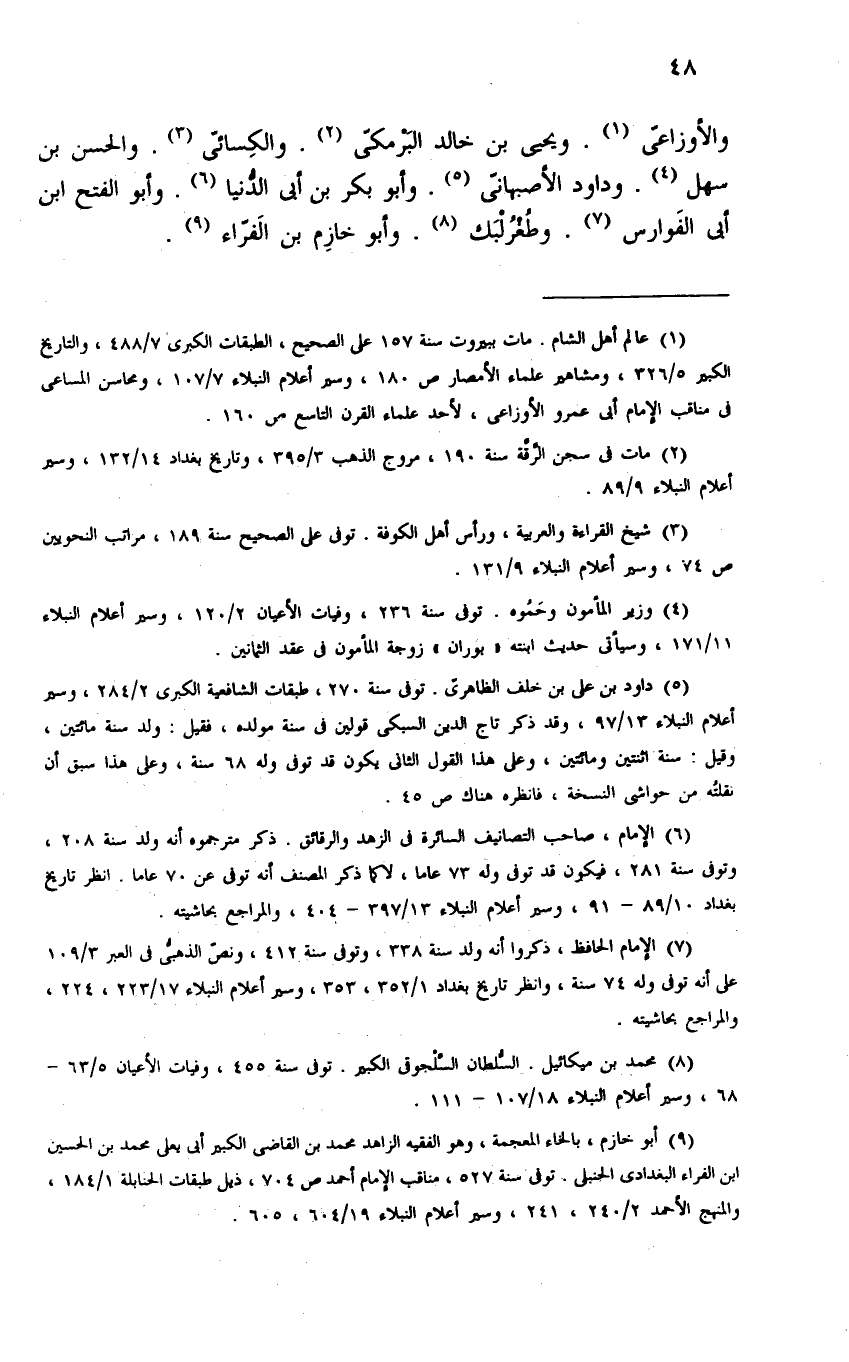 ٤٨
والأوزاعىّ (١) . ويحيى بن خالد البَرْمكىّ (٢) . والكِسائىّ (٣) . والحسن بن
سهل (٤) . وداود الأصبهانىّ (٥) . وأبو بكر بن أبى الدُّنيا (٦) . وأبو الفتح ابن
أبى الفَوارس (٧) . وطُغْرُلْبَك (٨) . وأبو خازِم بن الفَرّاء (٩) .
(١) عالم أهل الشام . مات ببيروت سنة ١٥٧ على الصحيح ، الطبقات الكبرى ٤٨٨/٧ ، والتاريخ
الكبير ٣٢٦/٥ ، ومشاهير علماء الأمصار ص ١٨٠ ، وسير أعلام النبلاء ١٠٧/٧ ، ومحاسن المساعى
فى مناقب الإمام أبى عمرو الأوزاعى ، لأحد علماء القرن التاسع ص ١٦٠ .
(٢) مات فى سجن الرَّقّة سنة ١٩٠ ، مروج الذهب ٣٩٥/٣ ، وتاريخ بغداد ١٣٢/١٤ ، وسير
أعلام النبلاء ٨٩/٩ .
(٣) شيخ القراءة والعربية ، ورأس أهل الكوفة . توفى على الصحيح سنة ١٨٩ ، مراتب النحويين
ص ٧٤ ، وسير أعلام النبلاء ١٣١/٩ .
(٤) وزير المأمون وحَمُوه . توفى سنة ٢٣٦ ، وفيات الأعيان ١٢٠/٢ ، وسير أعلام النبلاء
١٧١/١١ ، وسيأتى حديث ابنته « بوران » زوجة المأمون فى عقد الثمانين .
(٥) داود بن على بن خلف الظاهرىّ . توفى سنة ٢٧٠ ، طبقات الشافعية الكبرى ٢٨٤/٢ ، وسير
أعلام النبلاء ٩٧/١٣ ، وقد ذكر تاج الدين السبكى قولين فى سنة مولده ، فقيل : ولد سنة مائتين ،
وقيل : سنة اثنتين ومائتين ، وعلى هذا القول الثانى يكون قد توفى وله ٦٨ سنة ، وعلى هذا سبق أن
نقلتُه من حواشى النسخة ، فانظره هناك ص ٤٥ .
(٦) الإمام ، صاحب التصانيف السائرة فى الزهد والرقائق . ذكر مترجموه أنه ولد سنة ٢٠٨ ،
وتوفى سنة ٢٨١ ، فيكون قد توفى وله ٧٣ عاما ، لاكما ذكر المصنف أنه توفى عن ٧٠ عاما . انظر تاريخ
بغداد ٨٩/١٠ – ٩١ ، وسير أعلام النبلاء ٣٩٧/١٣ – ٤٠٤ ، والمراجع بحاشيته .
(٧) الإمام الحافظ ، ذكروا أنه ولد سنة ٣٣٨ ، وتوفى سنة ٤١٢ ، ونصّ الذهبىُّ فى العبر ١٠٩/٣
على أنه توفى وله ٧٤ سنة ، وانظر تاريخ بغداد ٣٥٢/١ ، ٣٥٣ ، وسير أعلام النبلاء ٢٢٣/١٧ ، ٢٢٤ ،
والمراجع بحاشيته .
(٨) محمد بن ميكائيل . السُّلطان السَّلْجوقى الكبير . توفى سنة ٤٥٥ ، وفيات الأعيان ٦٣/٥ –
٦٨ ، وسير أعلام النبلاء ١٠٧/١٨ – ١١١ .
(٩) أبو خازم ، بالخاء المعجمة ، وهو الفقيه الزاهد محمد بن القاضى الكبير أبى يعلى محمد بن الحسين
ابن الفراء البغدادى الحنبلى . توفى سنة ٥٢٧ ، مناقب الإمام أحمد ص ٧٠٤ ، ذيل طبقات الحنابلة ١٨٤/١ ،
والمنهج الأحمد ٢٤٠/٢ ، ٢٤١ ، وسير أعلام النبلاء ٦٠٤/١٩ ، ٦٠٥ .